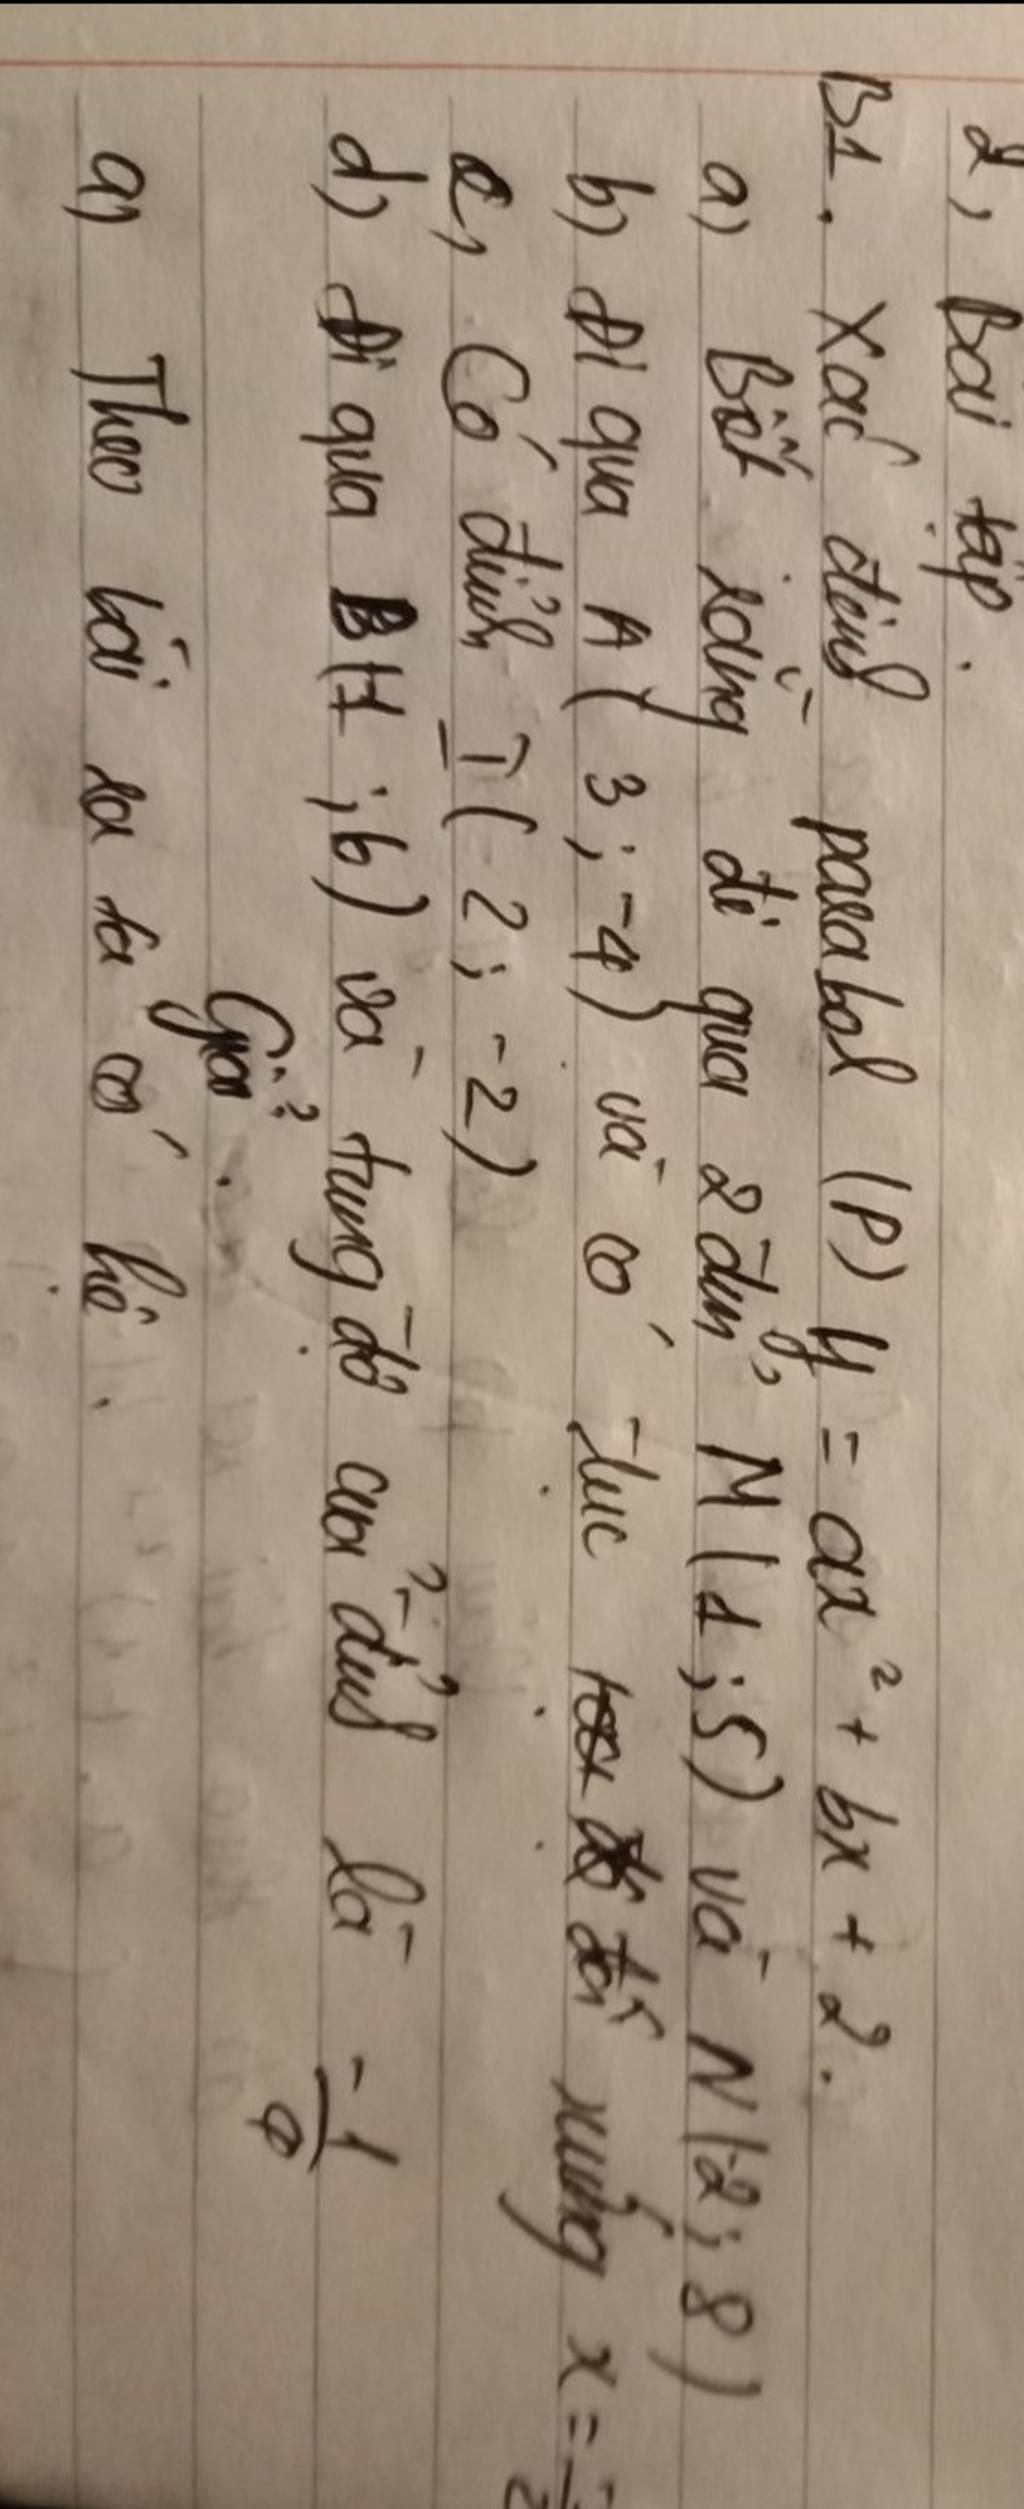 2, Bài tập.
B1. Xác định parabol (P) y = ax² + bx + 2.
a) Biết rằng đi qua 2 điểm M(1;5) và N(-2;8)
b) Đi qua A(3;-4) và có trục đối xứng x =
c, Có đỉnh I(2;-2)
d) Đi qua B(-1;6) và tung độ của đỉnh là -1
Giải.
a) Theo bài ra ta có hệ.